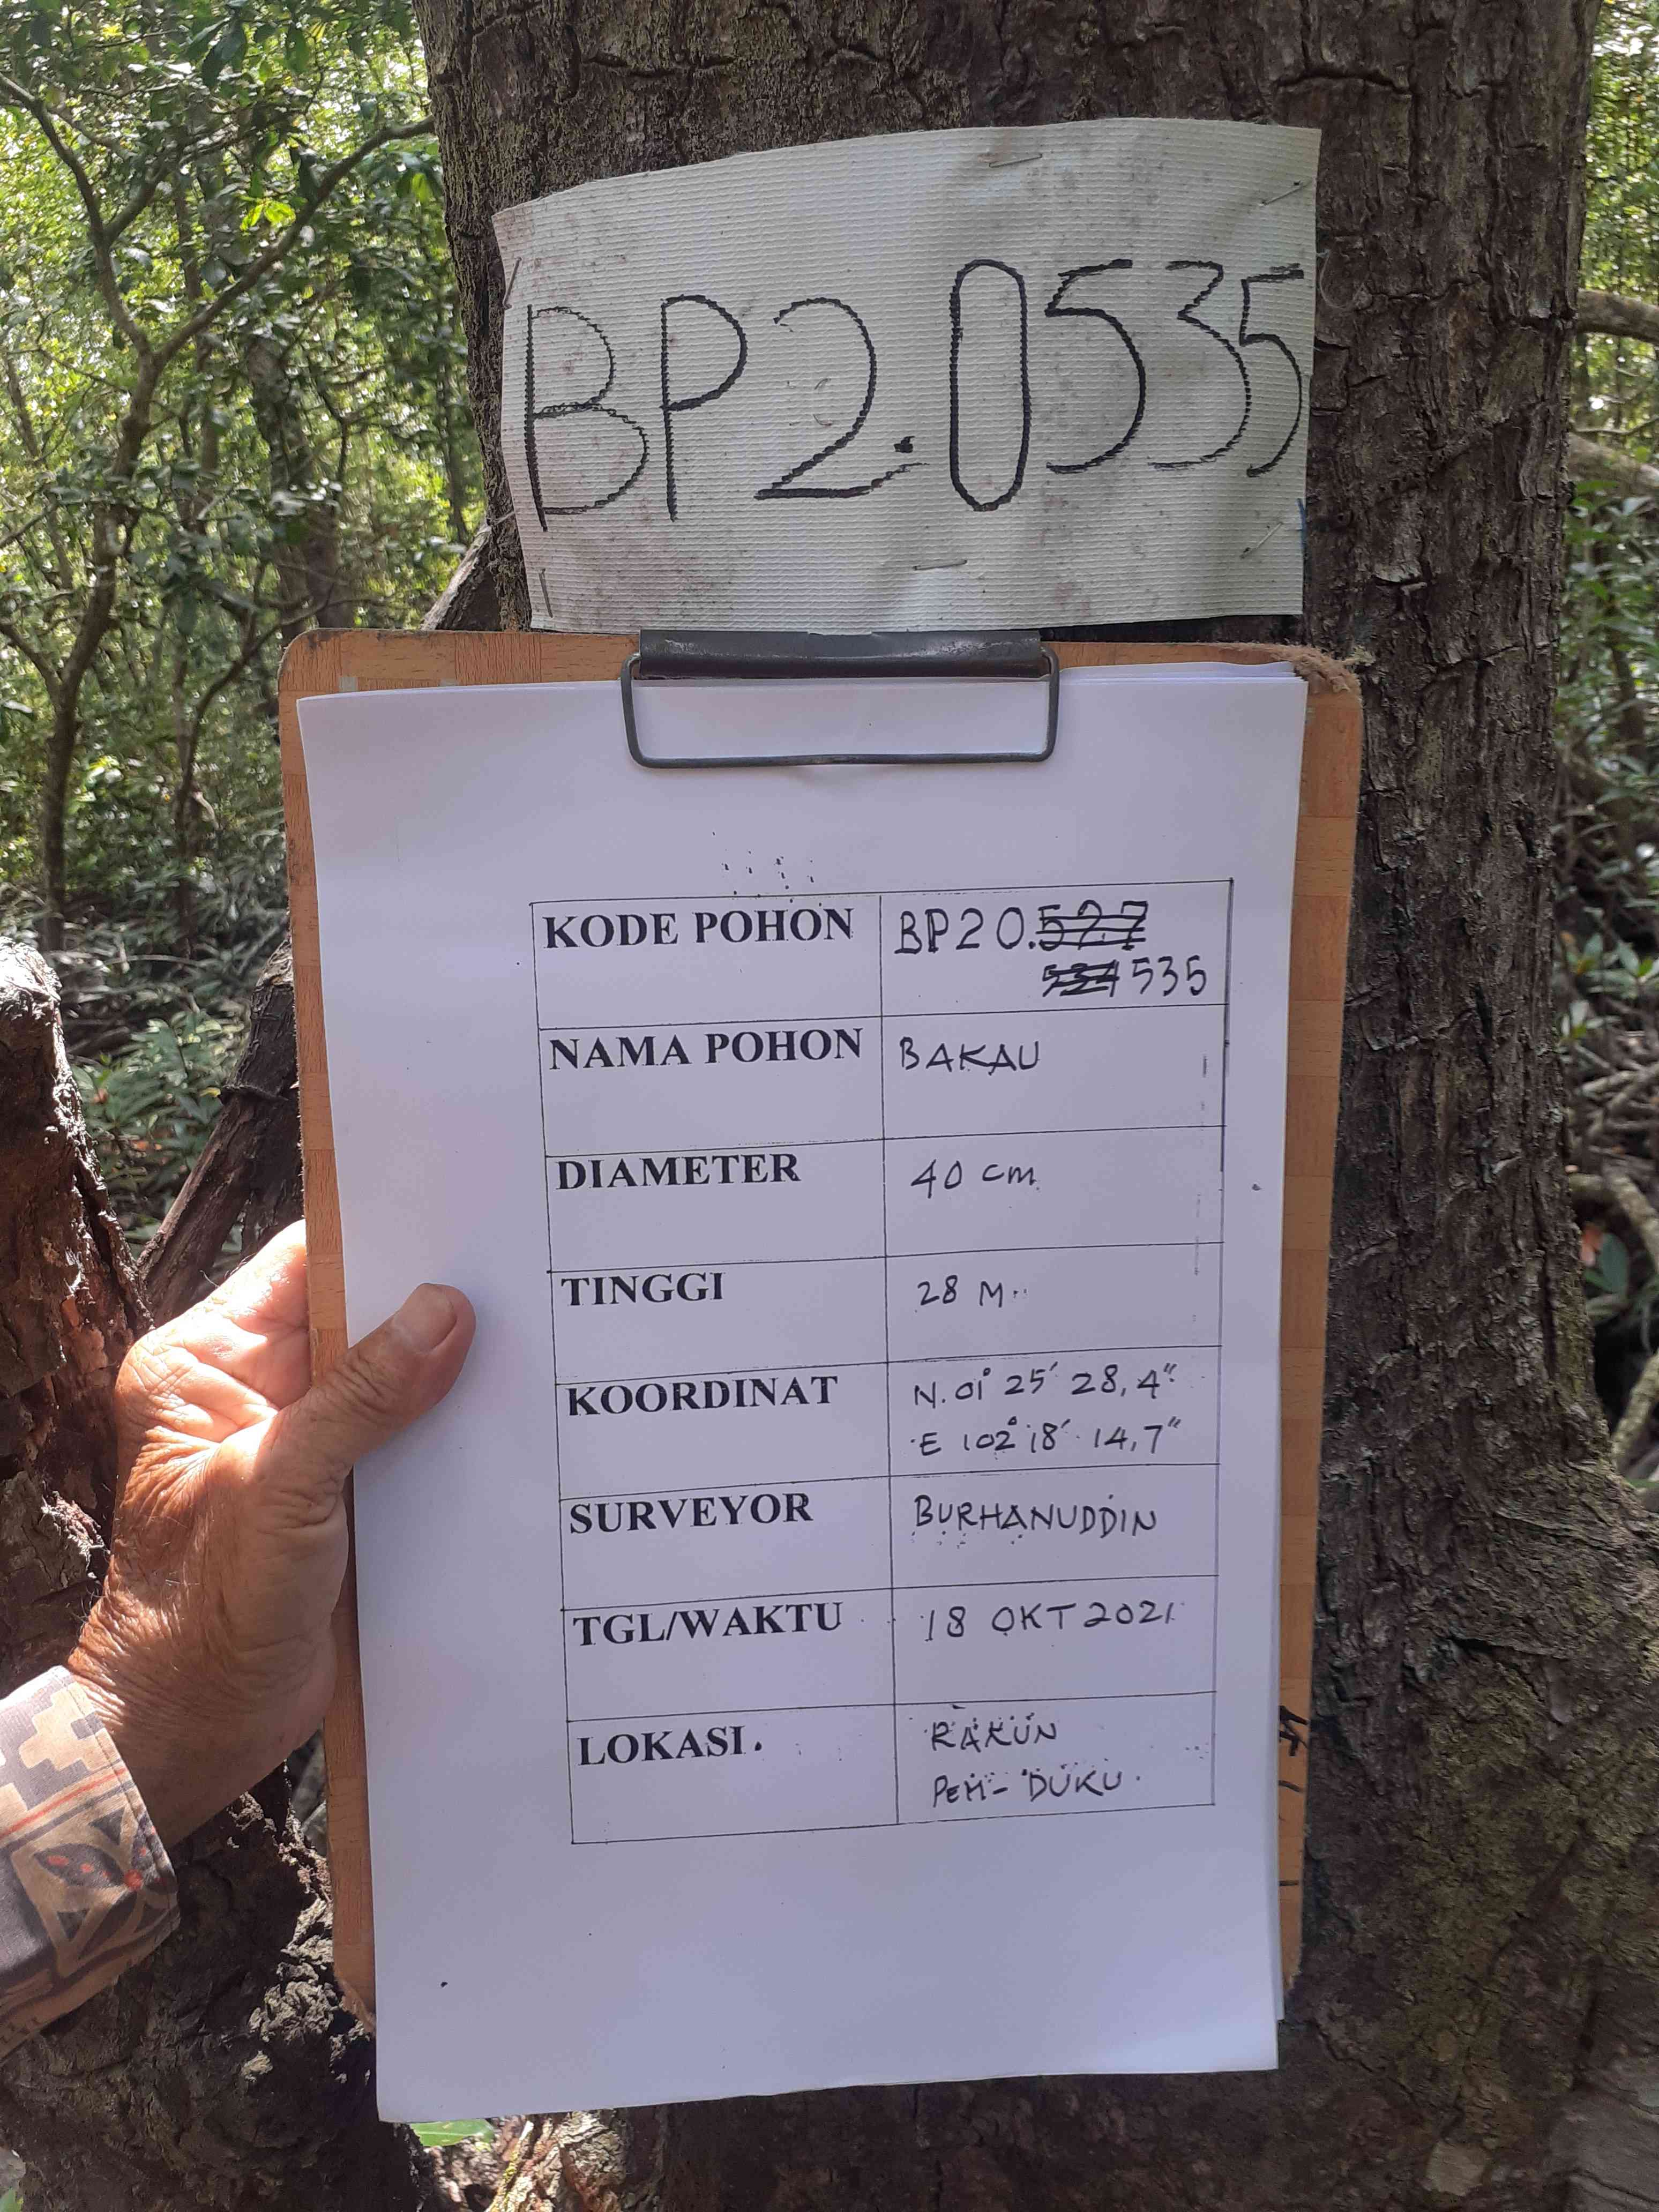 BP2.0535
KODE POHON BP20.527
534 535
NAMA POHON BAKAU
DIAMETER 40 cm
TINGGI 28 M
KOORDINAT N. 01° 25' 28,4"
E 102° 18' 14,7"
SURVEYOR BURHANUDDIN
TGL/WAKTU 18 OKT 2021
LOKASI. RAKUN
PEM- DUKU.